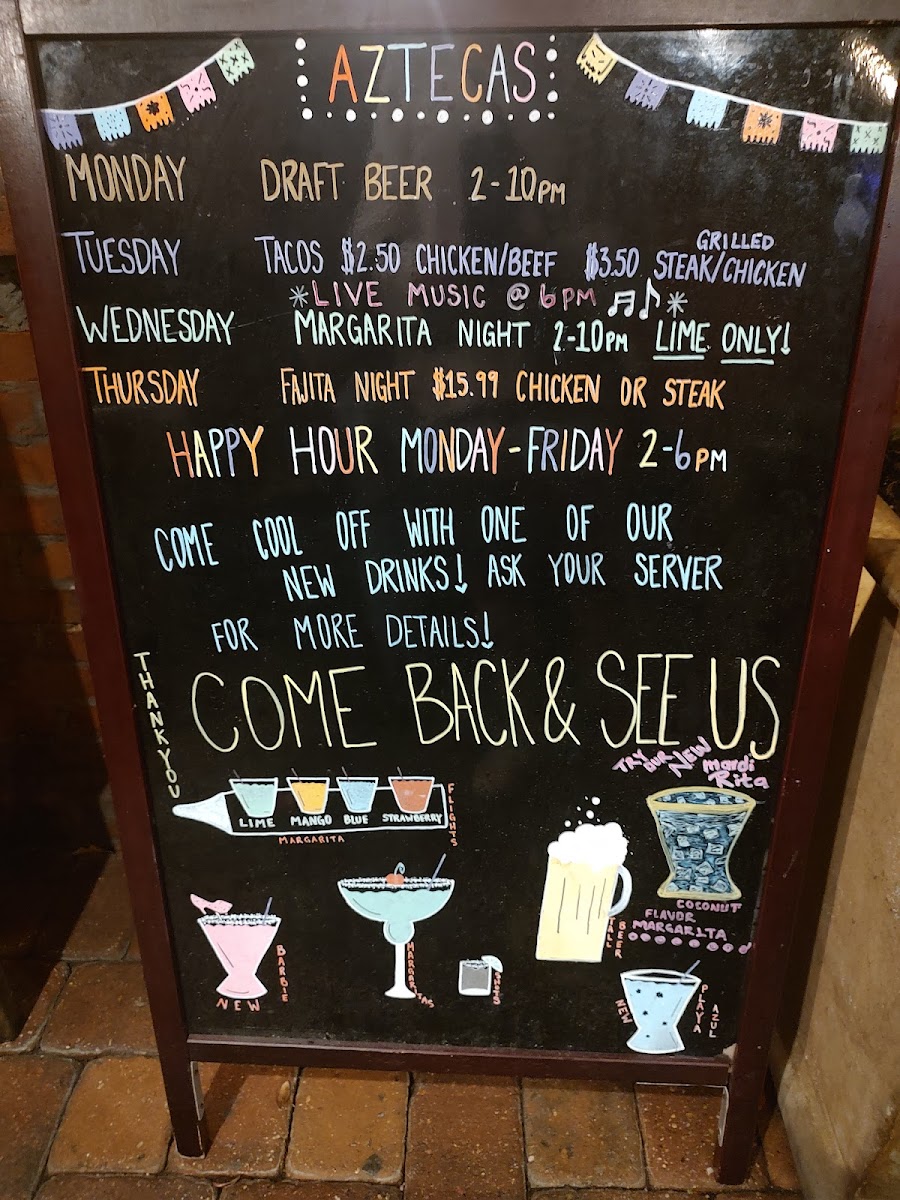 AZTECAS
MONDAY DRAFT BEER 2-10PM
TUESDAY TACOS $2.50 CHICKEN/BEEF $3.50 GRILLED STEAK/CHICKEN
*LIVE MUSIC @ 6PM *
WEDNESDAY MARGARITA NIGHT 2-10PM LIME ONLY!
THURSDAY FAJITA NIGHT $15.99 CHICKEN OR STEAK
HAPPY HOUR MONDAY-FRIDAY 2-6PM
COME COOL OFF WITH ONE OF OUR
NEW DRINKS! ASK YOUR SERVER
FOR MORE DETAILS!
THANK YOU
COME BACK & SEE US
TRY OUR NEW mardi
Rita
LIME MANGO BLUE STRAWBERRY
MARGARITA
FLIGHTS
COCONUT
FLAVOR
MARGARITA
TALL BEER
BARBIE
NEW
MARGARITAS
SHOTS
NEW
PLAYA AZUL